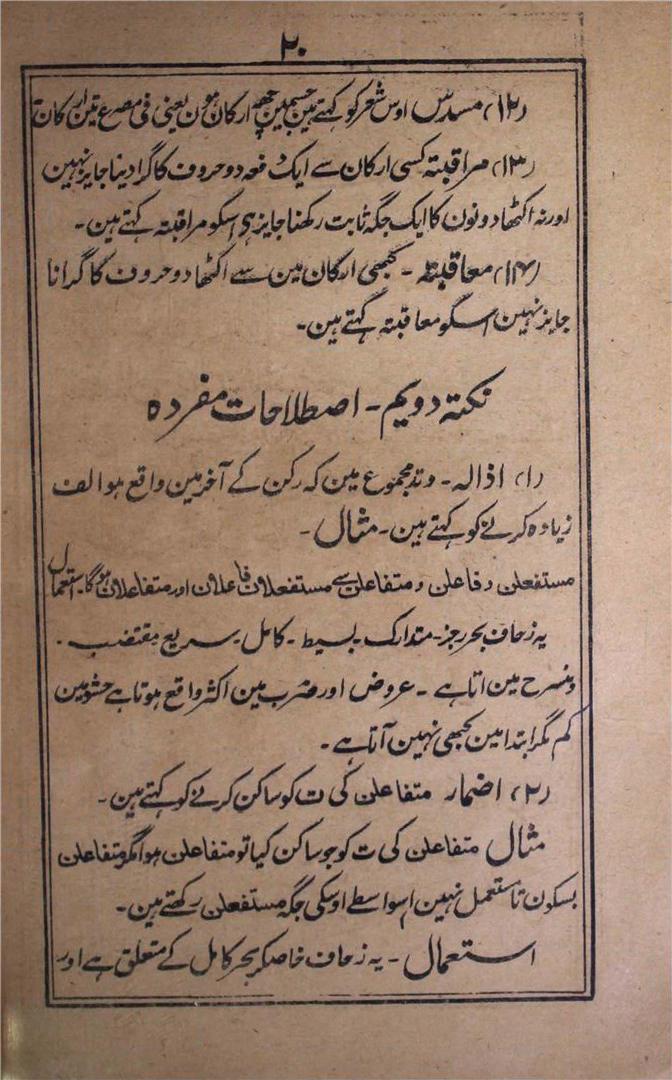 ۲۰
(۱۲) مسدس اوس شعر کو کہتے ہین جسمین چھہ ارکان ہون یعنی فی مصرع تین ارکان
(۱۳) مراقبتہ کسی ارکان سے ایک دفعہ دو حروف کا گرا دینا جایز نہین
اور نہ اکٹھا دونون کا ایک جگہ ثابت رکھنا جایز ہی اسکو مراقبتہ کہتے ہین۔
(۱۴) معاقبتہ۔ کبھی ارکان مین سے اکٹھا دو حروف کا گرانا
جایز نہین اسکو معاقبتہ کہتے ہین۔
نکتہ دویم۔ اصطلاحات مفردہ
(۱) اذالہ۔ وتد مجموع مین کہ رکن کے آخر مین واقع ہو الف
زیادہ کرنے کو کہتے ہین۔ مثال۔
مستفعلن و فاعلن و متفاعلن سے مستفعلان فاعلان اور متفاعلان ہوگا۔ استعمال
یہ زحاف بحر رجز۔ متدارک۔ بسیط۔ کامل۔ سریع مقتضب۔
ومنسرح مین اتا ہے۔ عروض اور ضرب مین اکثر واقع ہوتا ہے حشو مین
کم مگر ابتدا مین کبھی نہین آتا ہے۔
(۲) اضمار متفاعلن کی ت کو ساکن کرنے کو کہتے ہین۔
مثال متفاعلن کی ت کو جو ساکن کیا تو متفاعلن ہوا مگر متفاعلن
بسکون تا مستعمل نہین اسواسطے اوسکی جگہ مستفعلن رکھتے ہین۔
استعمال۔ یہ زحاف خاصکر بحر کامل کے متعلق ہے اور